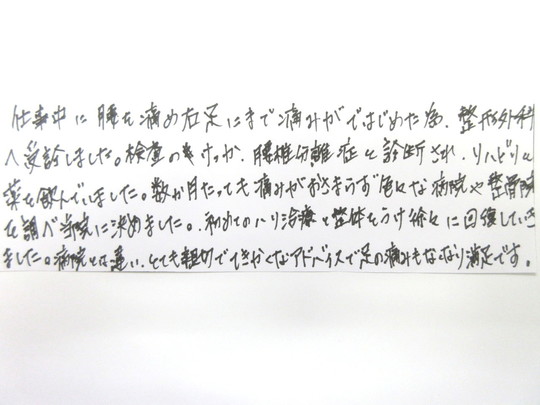 仕事中に腰を痛め右足にまで痛みがではじめた為、整形外科
へ受診しました。検査のけっか、腰椎分離症と診断され、リハビリと
薬を飲んでいました。数か月たっても痛みがおさまらず色々な病院や整骨院
を調べ当院に決めました。初めてのハリ治療と整体をうけ徐々に回復していき
ました。病院とは違い、とても親切でてきかくなアドバイスで足の痛みもなくなり満足です。